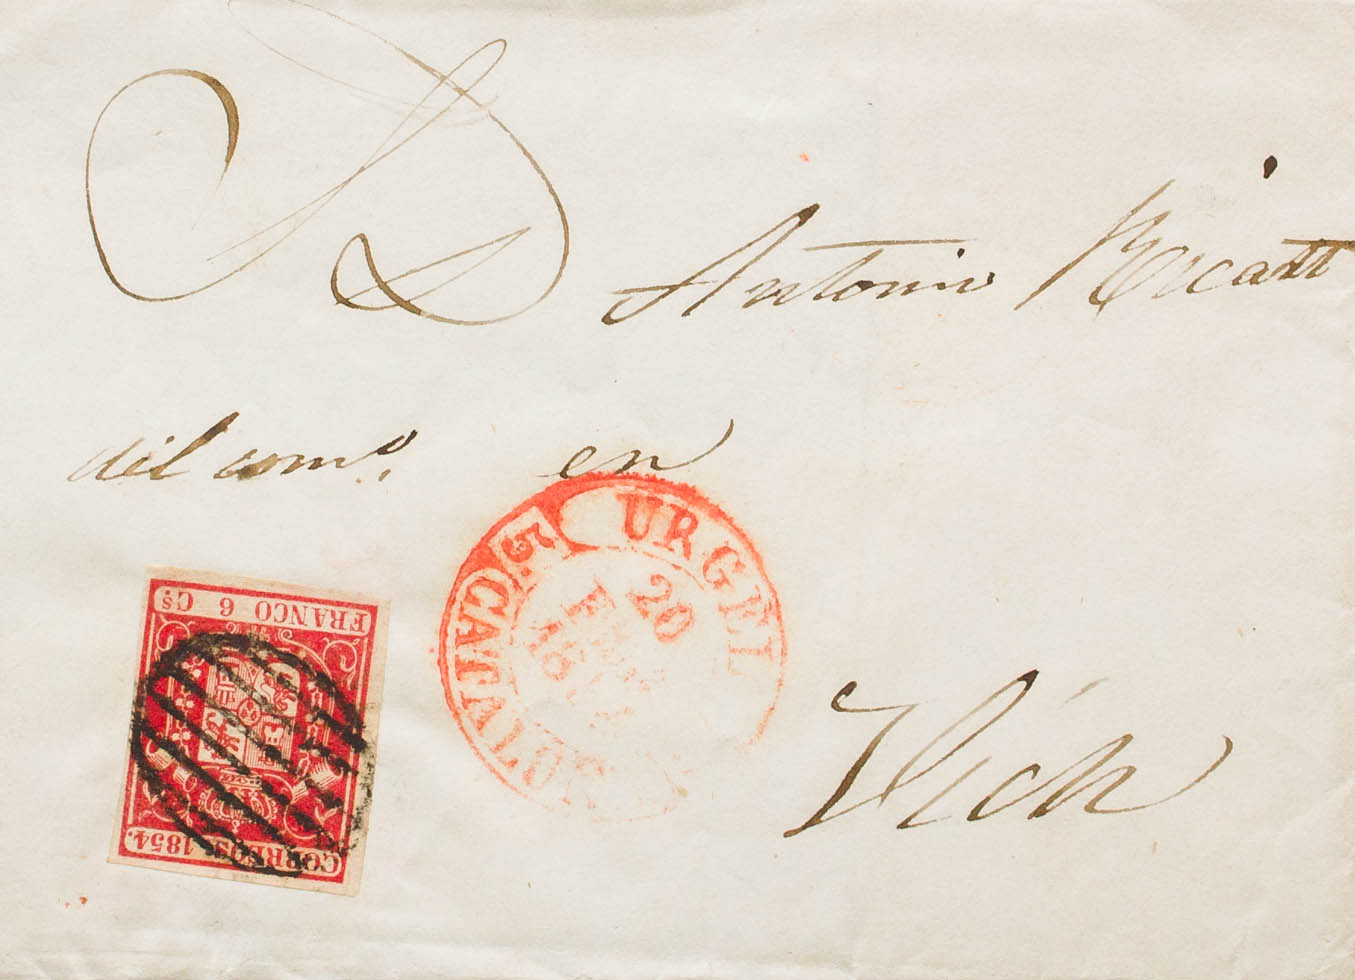 D Antonio Ricart
del com.º en
Vich
URGEL
20
CATALUÑA
5.
FRANCO 6 Cs
CORREOS 1854.